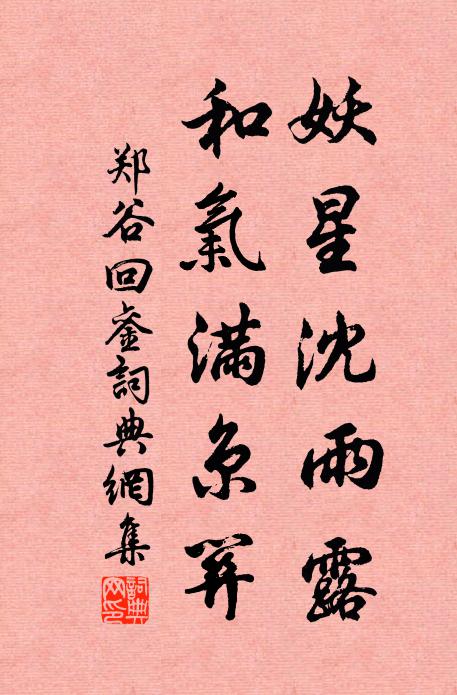 妖星沈雨露
和氣滿京关
郑谷回銮詞典網集
詞典网印